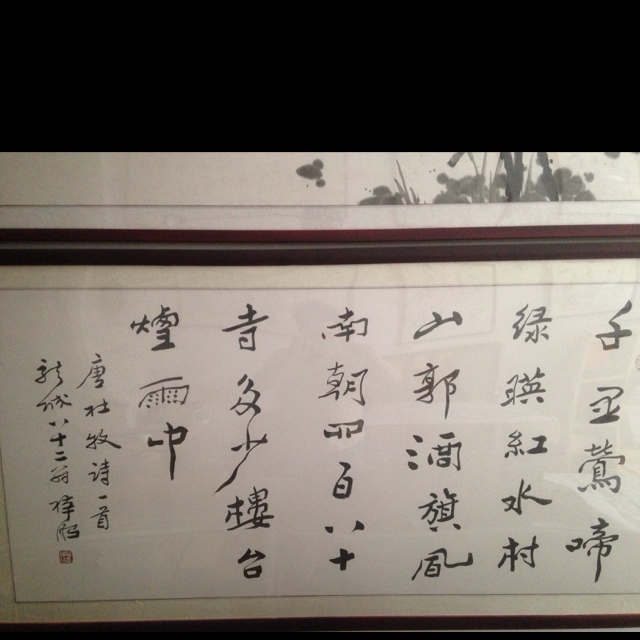 千里鶯啼
绿暎紅水村
山郭酒旗風
南朝四百八十
寺多少樓台
煙雨中
唐杜牧诗一首
八十二翁